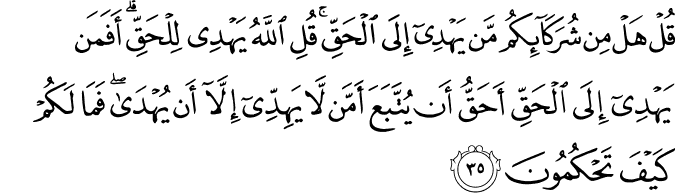 قُلۡ هَلۡ مِن شُرَكَآئِكُم مَّن يَهۡدِيٓ إِلَى ٱلۡحَقِّۚ قُلِ ٱللَّهُ يَهۡدِي لِلۡحَقِّۗ أَفَمَن
يَهۡدِيٓ إِلَى ٱلۡحَقِّ أَحَقُّ أَن يُتَّبَعَ أَمَّن لَّا يَهِدِّيٓ إِلَّآ أَن يُهۡدَىٰۖ فَمَا لَكُمۡ
كَيۡفَ تَحۡكُمُونَ ٣٥